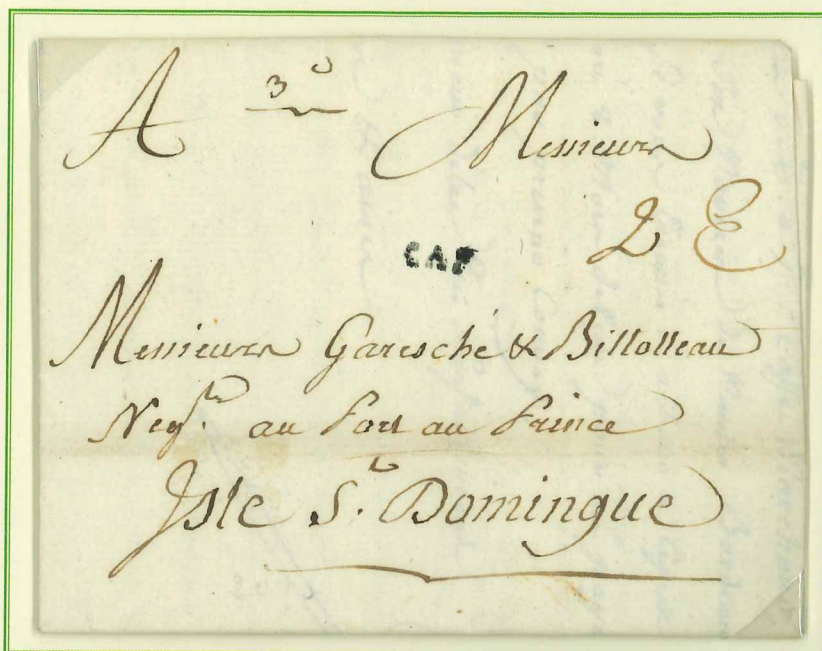 3e
A Messieurs
2 E
CAP
Messieurs Garesché & Billotteau
Negts. au Port au Prince
Isle St. Domingue